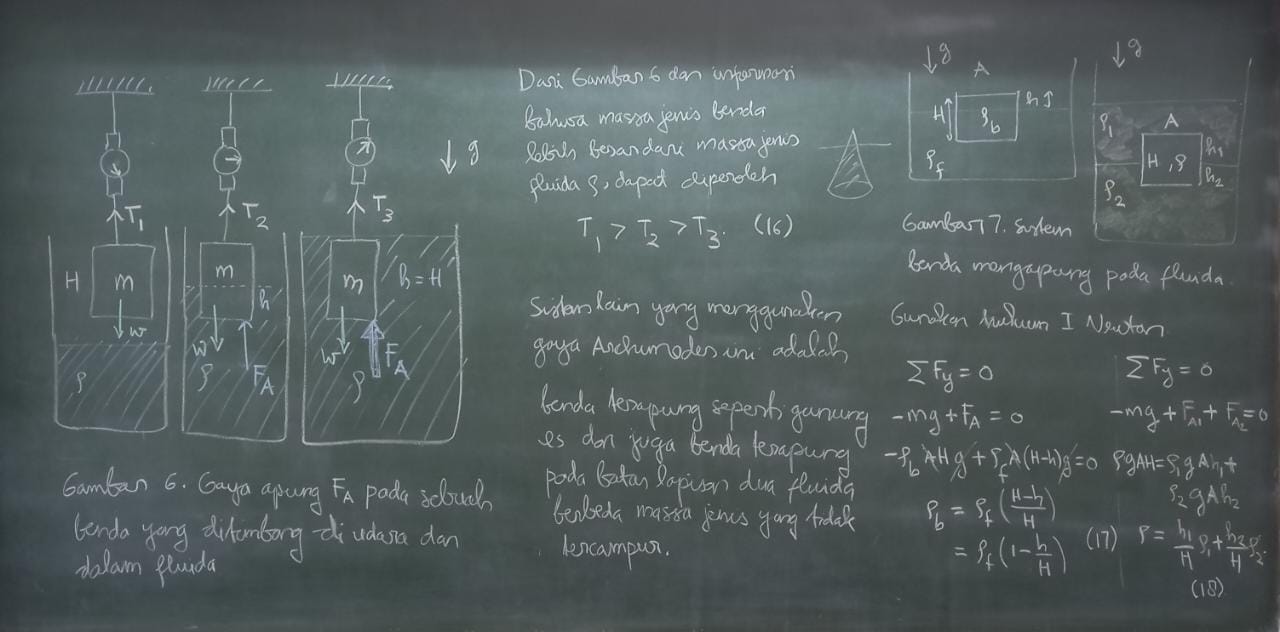 T₁
T₂
T₃
↓ g
H
m
w
ρ
m
h
w
ρ
F_A
m
h = H
w
ρ
F_A
Gambar 6. Gaya apung F_A pada sebuah
benda yang ditimbang di udara dan
dalam fluida
Dari Gambar 6 dan informasi
bahwa massa jenis benda
lebih besar dari massa jenis
fluida ρ, dapat diperoleh
T₁ > T₂ > T₃. (16)
Sistem lain yang menggunakan
gaya Archimedes ini adalah
benda terapung seperti gunung
es dan juga benda terapung
pada batas lapisan dua fluida
berbeda massa jenis yang tidak
tercampur.
↓ g
A
H
h
ρ_b
ρ_f
↓ g
ρ₁
A
H, ρ
h₁
h₂
ρ₂
Gambar 7. Sistem
benda mengapung pada fluida.
Gunakan hukum I Newton
ΣFy = 0
-mg + F_A = 0
-ρ_b AHg + ρ_f A(H-h)g = 0
ρ_b = ρ_f (H-h / H)
= ρ_f (1 - h/H) (17)
ΣFy = 0
-mg + F_A₁ + F_A₂ = 0
ρgAH = ρ₁gAh₁ +
ρ₂gAh₂
ρ = h₁/H ρ₁ + h₂/H ρ₂
(18)